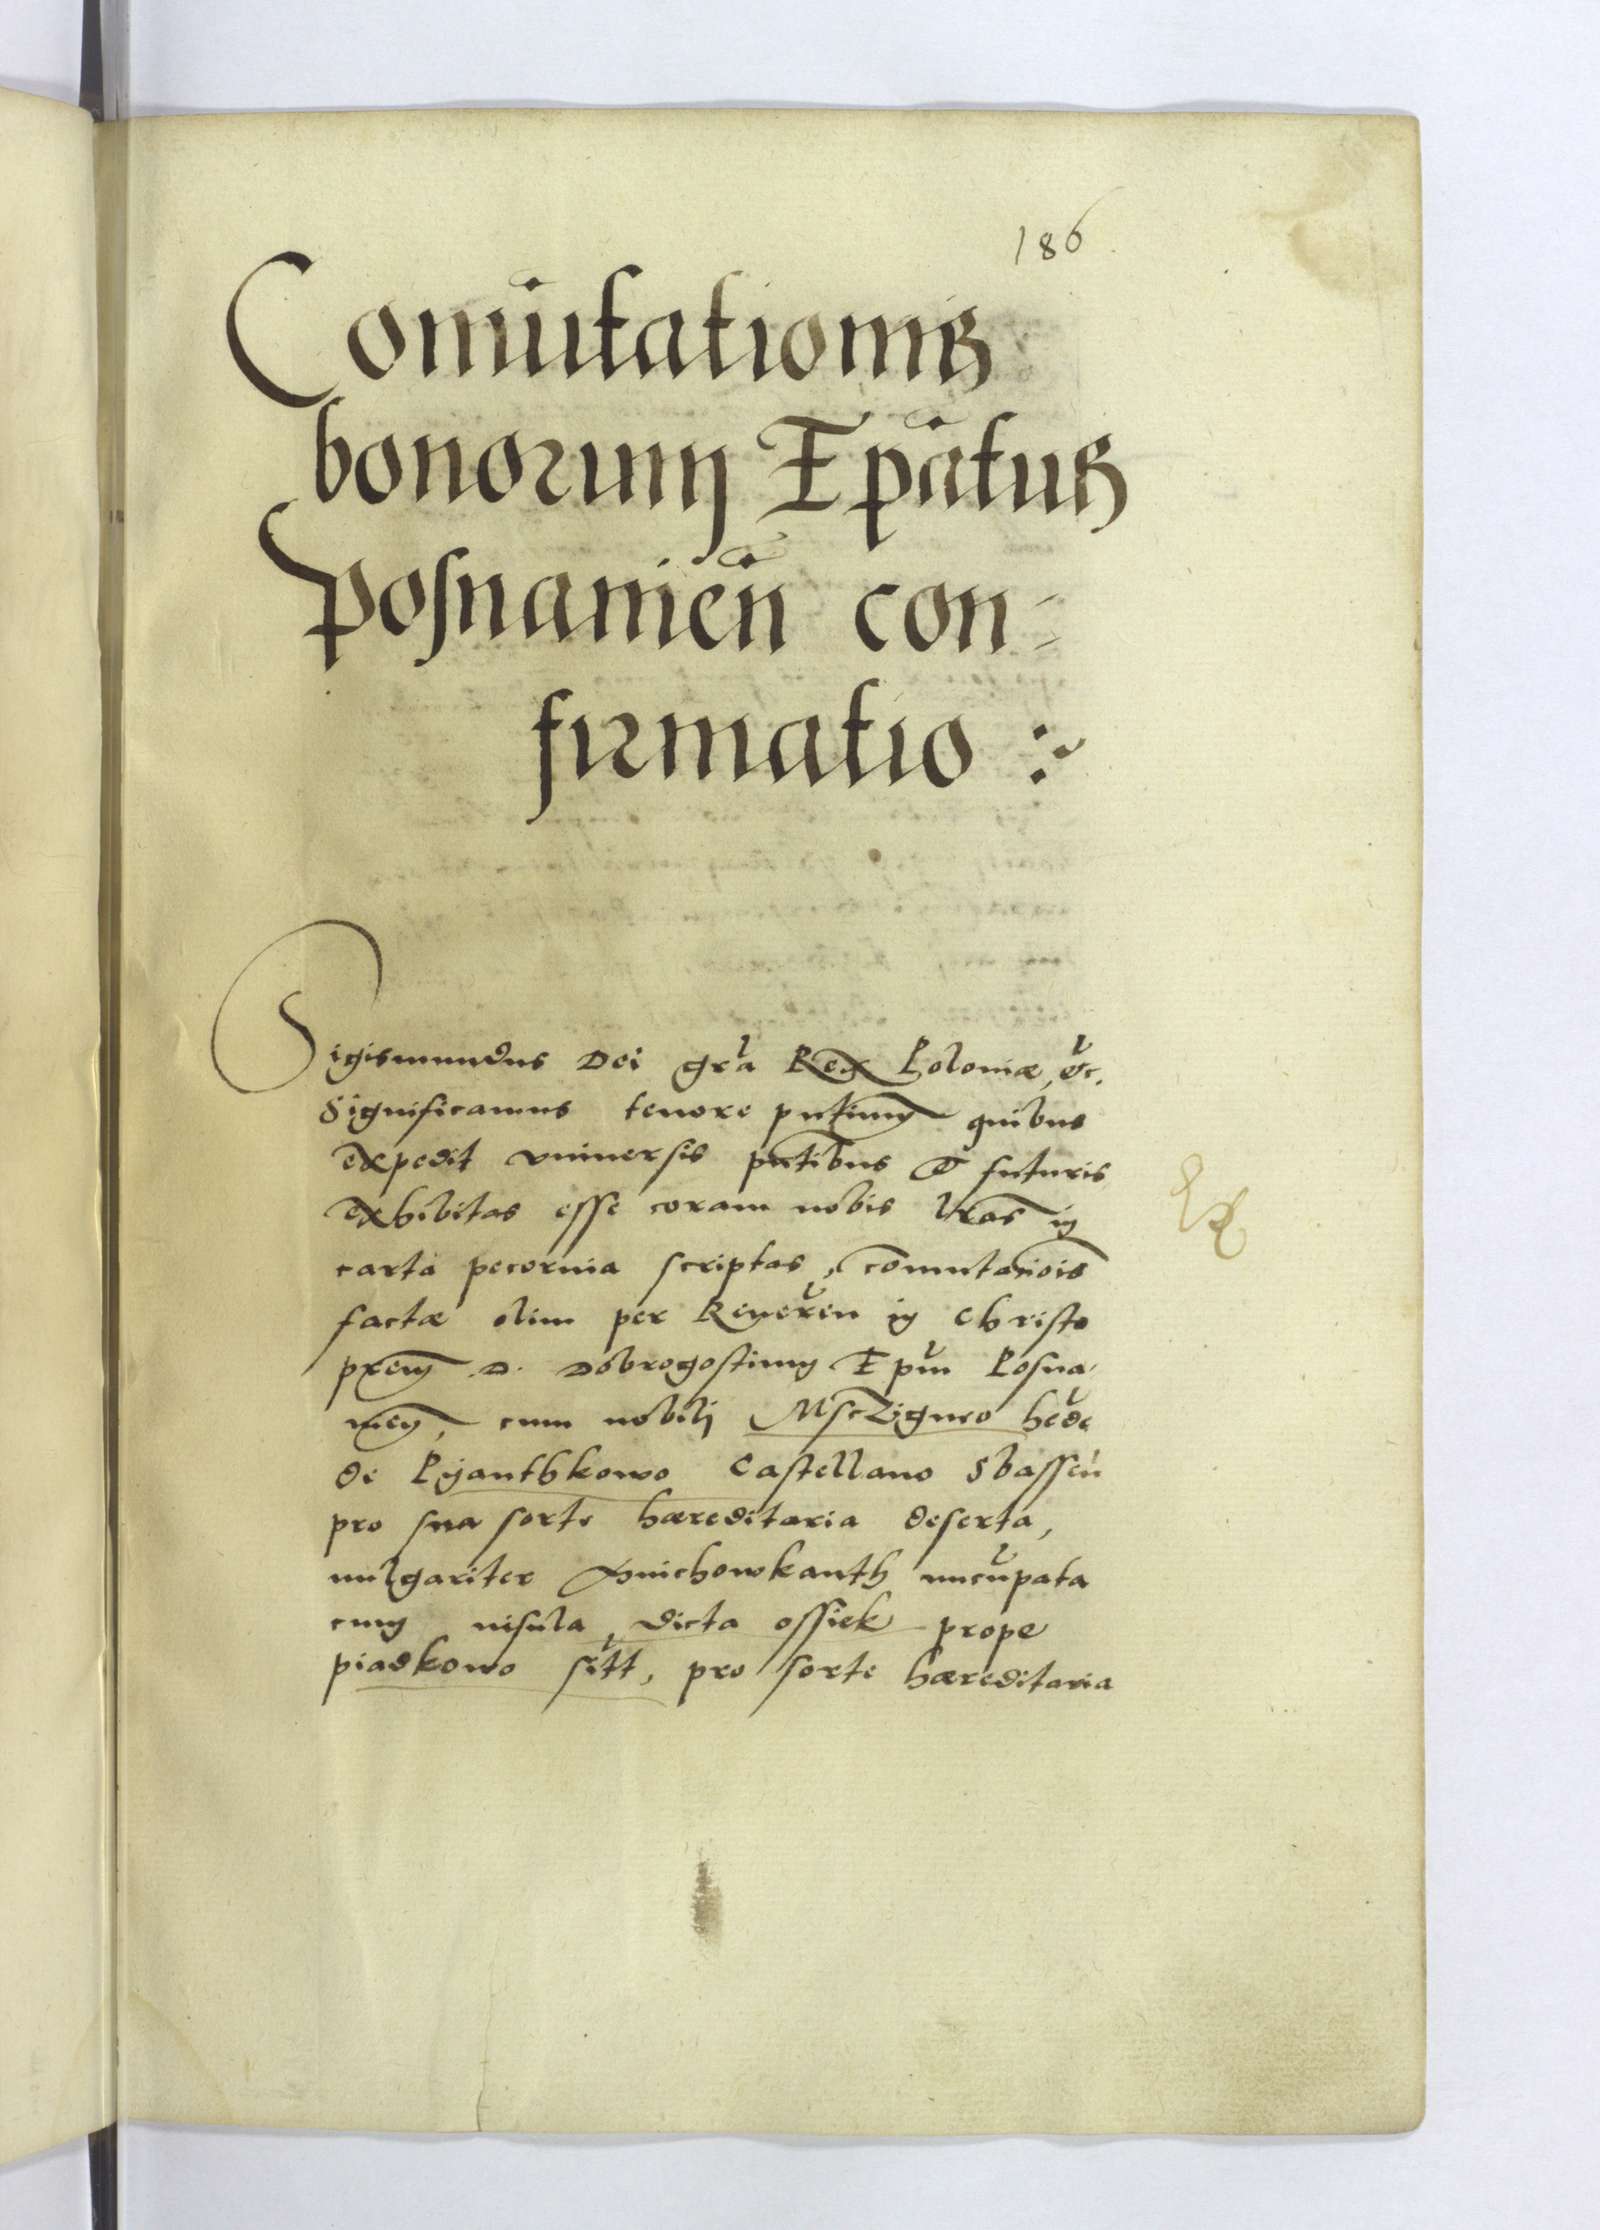 186
Comutationis
bonorum Epatus
Posnanien con-
firmatio :~
Sigismundus Dei gra Rex Poloniæ, etc.
Significamus tenore pntium quibus
expedit vniuersis pntibus & futuris
exhibitas esse coram nobis lras in
carta pecornia scriptas, comutaciois
factæ olim per Reueren in Christo
prem D. Dobrogostium Epum Posna-
nien, cum nobili Msczigneo hede
de Pyanthkowo Castellano Sbassen
pro sua sorte hæreditaria deserta,
uulgariter nucupata
cum nisula, dicta ossiek prope
piadkowo sitt, pro sorte hæreditaria